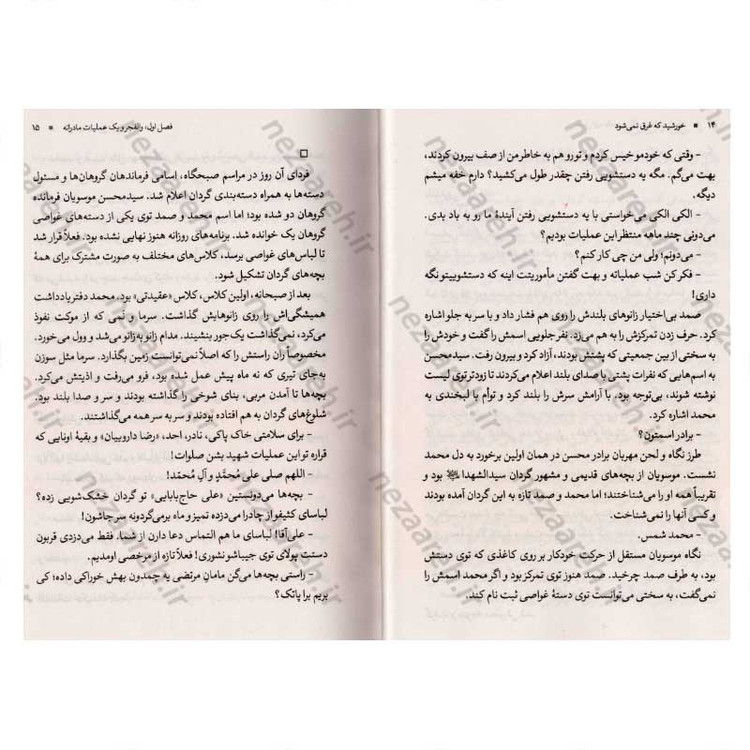 ۱۴ ■ خورشید که غرق نمی‌شود
- وقتی که خودمو خیس کردم و تو رو هم به خاطر من از صف بیرون کردند،
بهت می‌گم. مگه یه دستشویی رفتن چقدر طول می‌کشید؟ دارم خفه میشم
دیگه.
- الکی الکی می‌خواستی با یه دستشویی رفتن آیندهٔ ما رو به باد بدی.
می‌دونی چند ماهه منتظر این عملیات بودیم؟
- می‌دونم؛ ولی من چی کار کنم؟
- فکر کن شب عملیاته و بهت گفتن مأموریتت اینه که دستشوییتو نگه
داری!
صمد بی‌اختیار زانوهای بلندش را روی هم فشار داد و با سر به جلو اشاره
کرد. حرف زدن تمرکزش را به هم می‌زد. نفر جلویی اسمش را گفت و خودش را
به سختی از بین جمعیتی که پشتش بودند، آزاد کرد و بیرون رفت. سیدمحسن
به اسم‌هایی که نفرات پشتی با صدای بلند اعلام می‌کردند تا زودتر توی لیست
نوشته شوند، بی‌توجه بود. با آرامش سرش را بلند کرد و توأم با لبخندی به
محمد اشاره کرد.
- برادر اسمتون؟
طرز نگاه و لحن مهربان برادر محسن در همان اولین برخورد به دل محمد
نشست. موسویان از بچه‌های قدیمی و مشهور گردان سیدالشهدا بود و
تقریباً همه او را می‌شناختند؛ اما محمد و صمد تازه به این گردان آمده بودند
و کسی آنها را نمی‌شناخت.
- محمد شمس.
نگاه موسویان مستقل از حرکت خودکار بر روی کاغذی که توی دستش
بود، به طرف صمد چرخید. صمد هنوز توی تمرکز بود و اگر محمد اسمش را
نمی‌گفت، به سختی می‌توانست توی دستهٔ غواصی ثبت نام کند.
فصل اول: والفجر و یک عملیات مادرانه ■ ۱۵
□
فردای آن روز در مراسم صبحگاه، اسامی فرماندهان گروهان‌ها و مسئول
دسته‌ها به همراه دسته‌بندی گردان اعلام شد. سیدمحسن موسویان فرمانده
گروهان دو شده بود؛ اما اسم محمد و صمد توی یکی از دسته‌های غواصی
گروهان یک خوانده شد. برنامه‌های روزانه هنوز نهایی نشده بود. فعلاً قرار شد
تا لباس‌های غواصی برسد، کلاس‌های مختلف به صورت مشترک برای همهٔ
بچه‌های گردان تشکیل شود.
بعد از صبحانه، اولین کلاس، کلاس «عقیدتی» بود. محمد دفتر یادداشت
همیشگی‌اش را روی زانوهایش گذاشت. سرما و نمی که از موکت نفوذ
می‌کرد، نمی‌گذاشت یک‌جور بنشیند. مدام زانو به زانو می‌شد و وول می‌خورد.
مخصوصاً ران راستش را که اصلاً نمی‌توانست زمین بگذارد. سرما مثل سوزن
به‌جای تیری که نه ماه پیش عمل شده بود، فرو می‌رفت و اذیتش می‌کرد.
بچه‌ها تا آمدن مربی، بنای شوخی را گذاشته بودند و سر و صدا بلند بود.
شلوغ‌های گردان به هم افتاده بودند و سر به سر هم می‌گذاشتند.
- برای سلامتی خاک پاکی، نادر، احد، «رضا داروییان» و بقیهٔ اونایی که
قراره تو این عملیات شهید بشن صلوات!
- اللهم صلی علی مُحمَّدٍ و آلِ مُحمّد!
- بچه‌ها می‌دونستین «علی حاج‌بابایی» تو گردان خشک‌شویی زده؟
لباسای کثیفو از چادرا می‌دزده تمیز و ماه برمی‌گردونه سر جاشون!
- علی‌آقا! لباسای ما هم التماس دعا دارن از شما. فقط می‌دزدی قربون
دستت پولای توی جیباشو نشوری! فعلاً تازه از مرخصی اومدیم.
- راستی بچه‌ها می‌گن مامان مرتضی یه چمدون بهش خوراکی داده؛ کی
بریم برا پاتک؟
nezaareh.ir